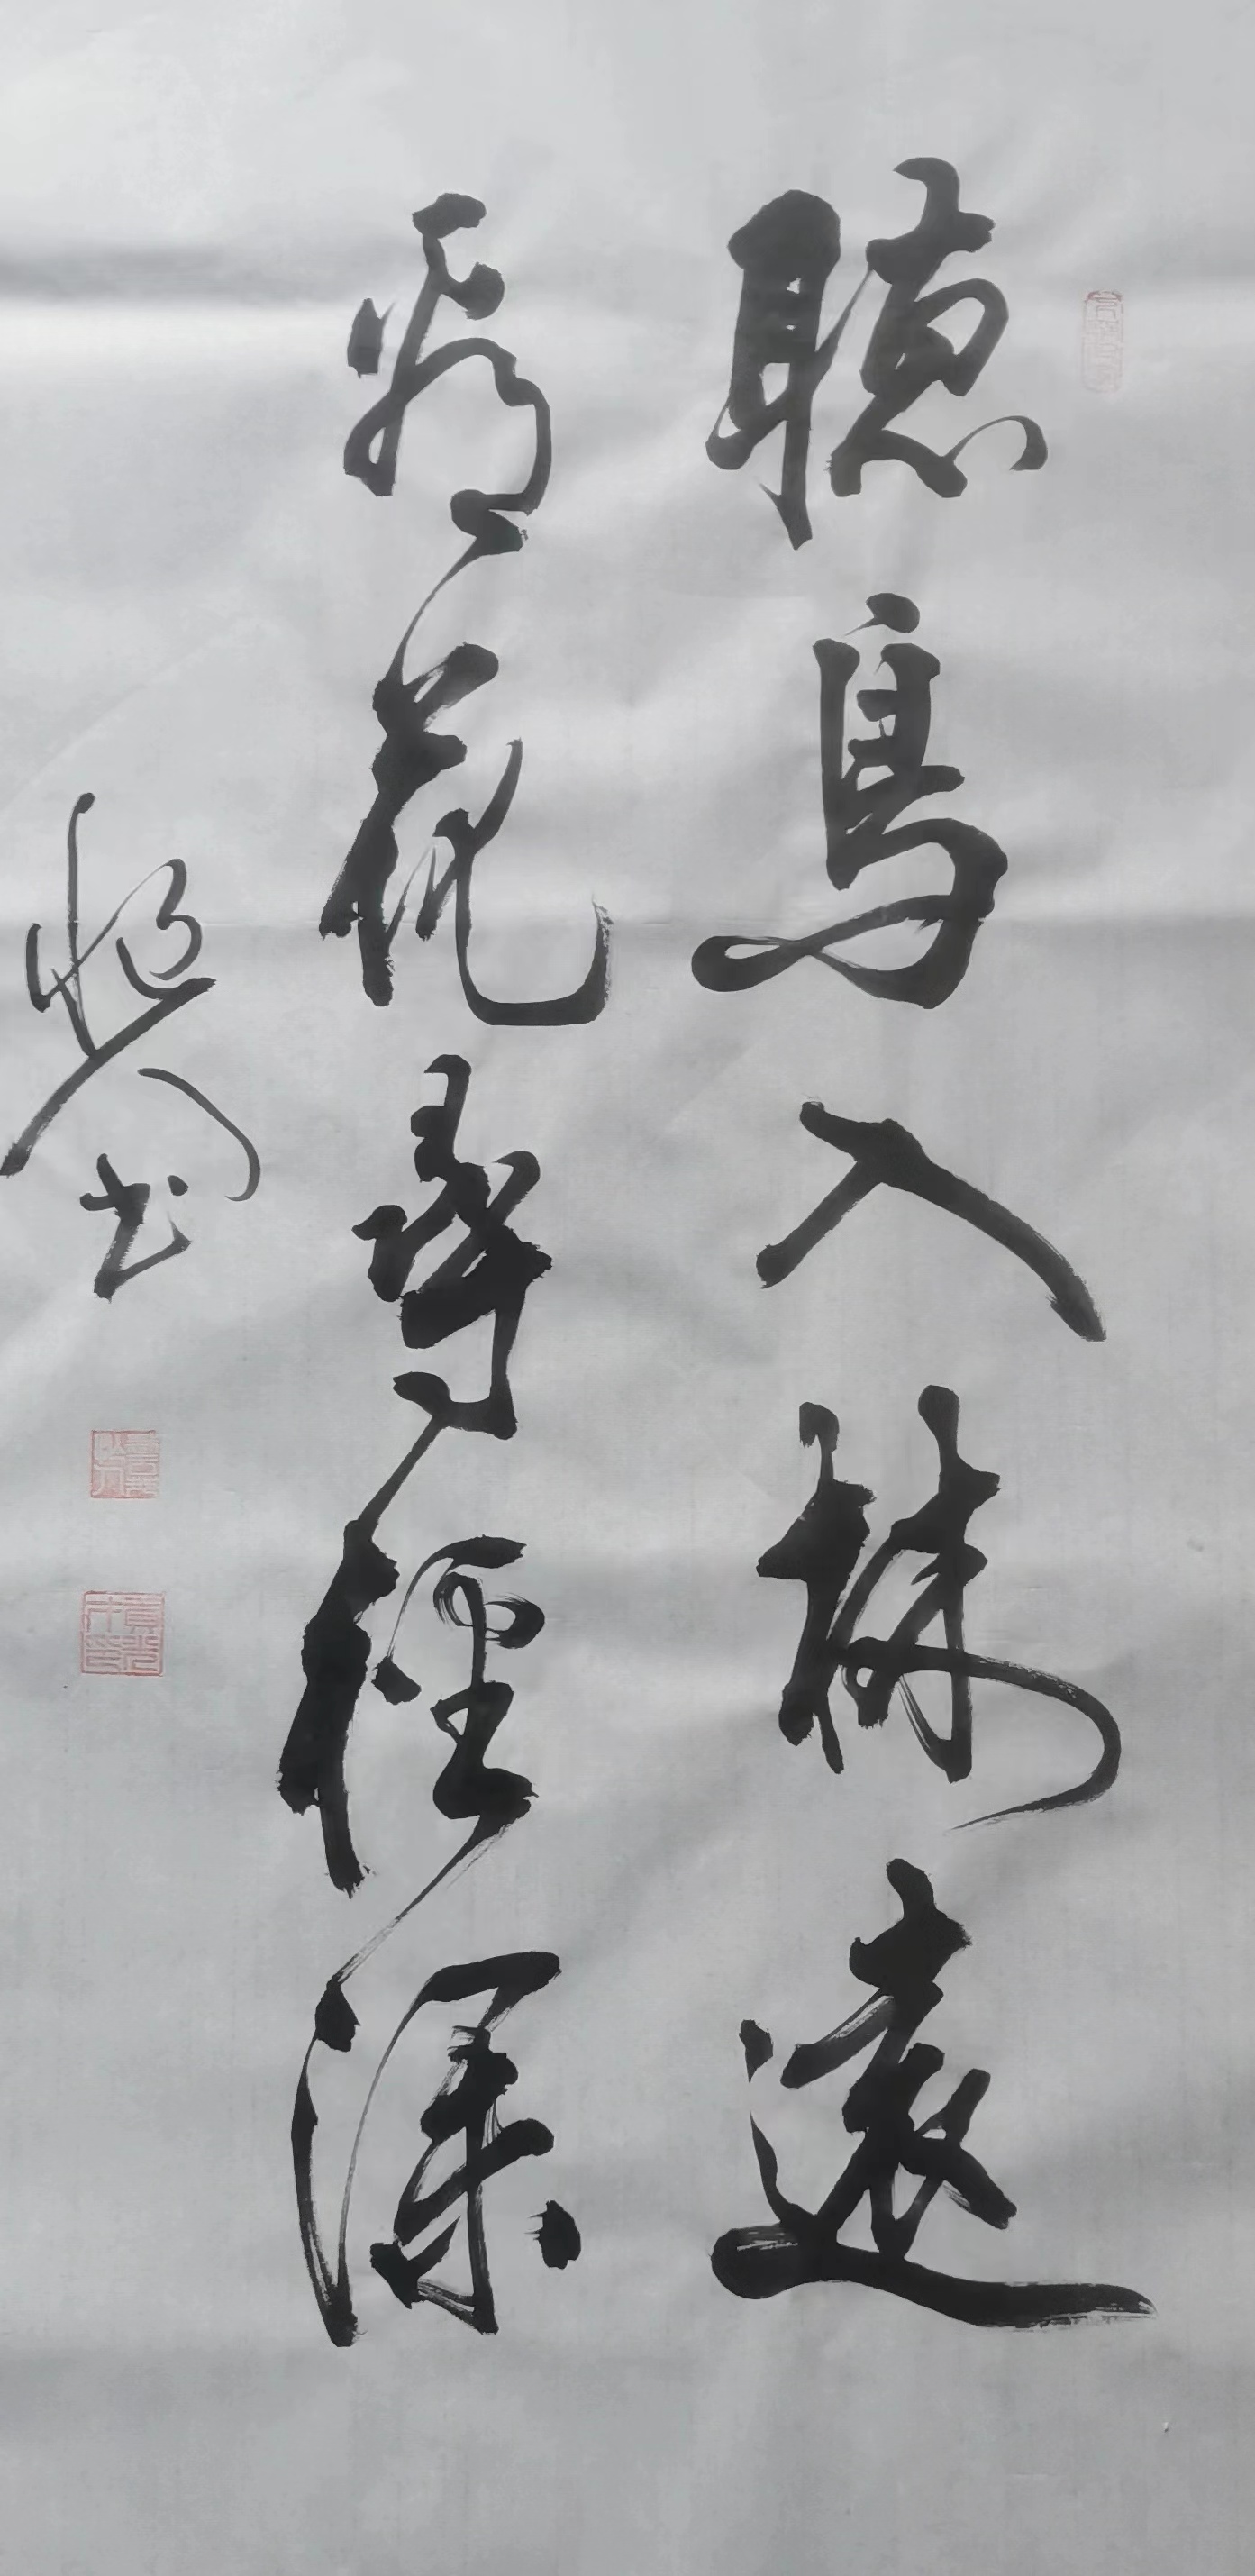 聽鳥入林遠
看花尋徑深
書